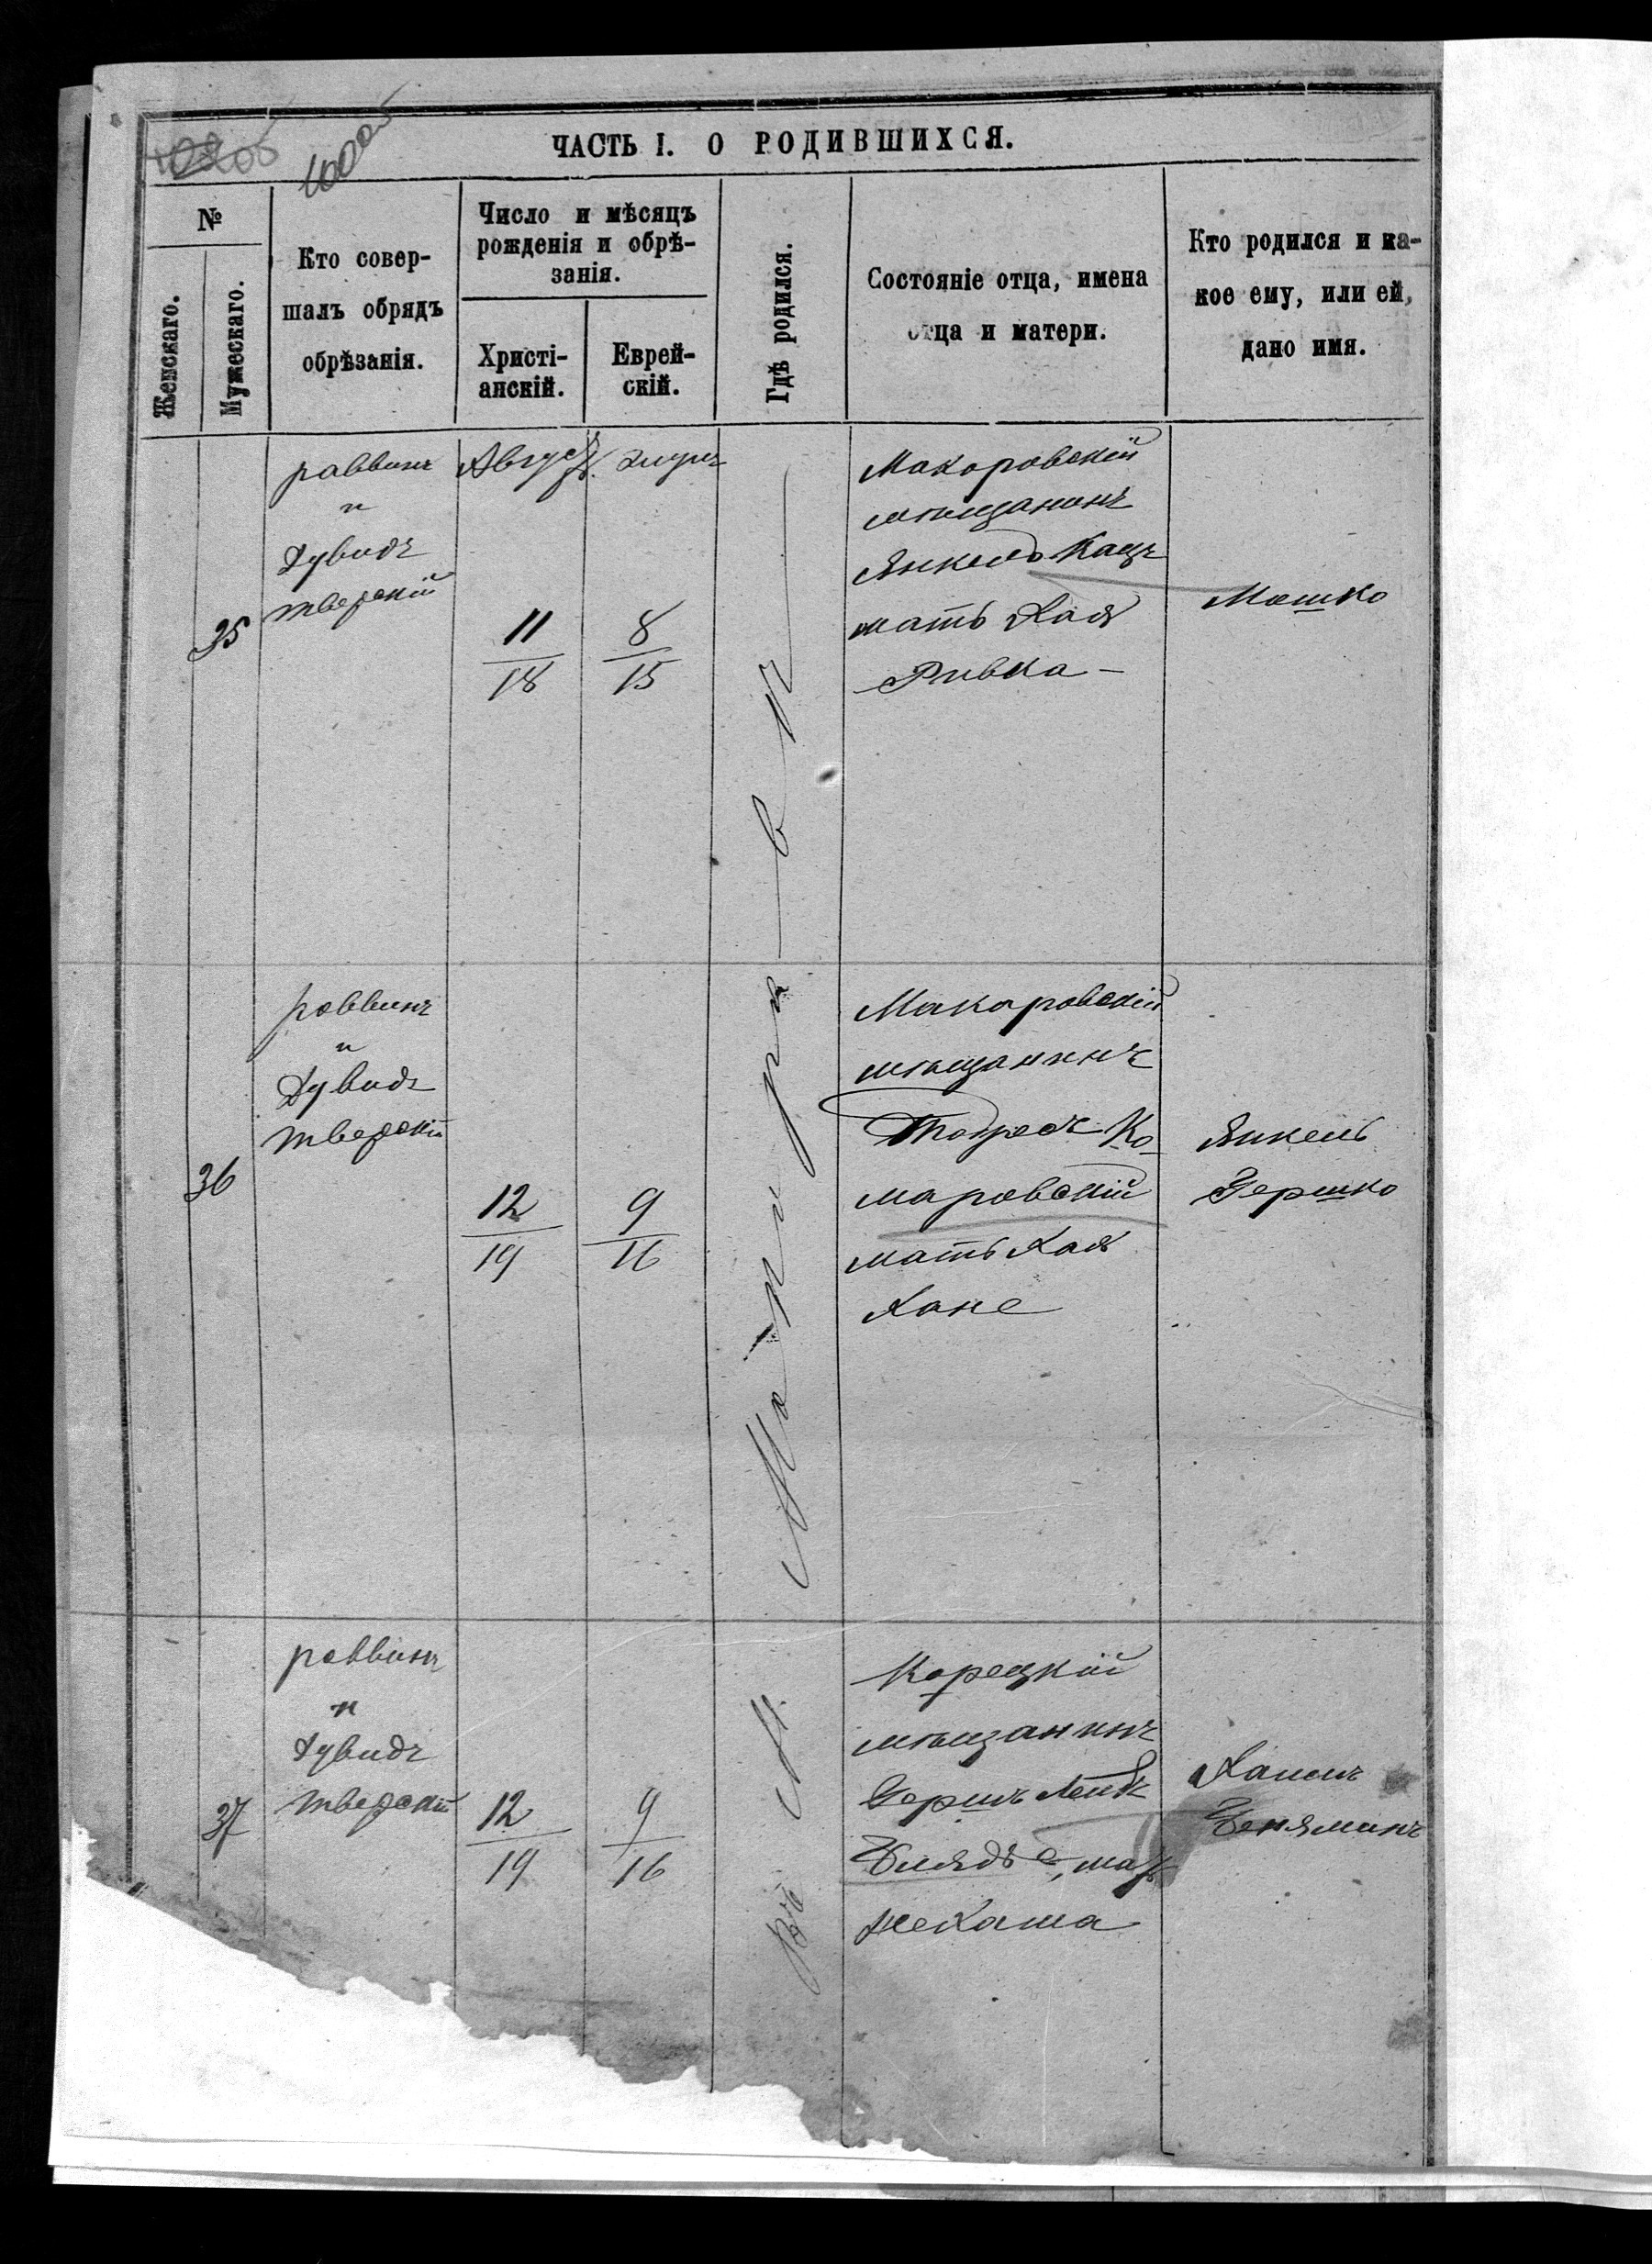 100об
ЧАСТЬ I. О РОДИВШИХСЯ.
№
Женскаго.
Мужескаго.
Кто совер-
шалъ обрядъ
обрѣзанія.
Число и мѣсяцъ
рожденія и обрѣ-
занія.
Христі-
анскій.
Еврей-
скій.
Гдѣ родился.
Состояніе отца, имена
отца и матери.
Кто родился и ка-
кое ему, или ей,
дано имя.
35
раввинъ
и
Дувидъ
Тверскій
Август.
11
18
8
15
Макаровскій
мѣщанинъ
Янкель Кацъ
мать Хая
Ривка –
Мошко
36
раввинъ
и
Дувидъ
Тверскій
12
19
9
16
Макаровскій
мѣщанинъ
Тодресъ Ко-
маровскій
мать Хая
Хане
Янкель
Гершко
37
раввинъ
и
Дувидъ
Тверскій
12
19
9
16
Въ М.
Корецкій
мѣщанинъ
Гершъ Лейб
мать
Нехама
Беняминъ